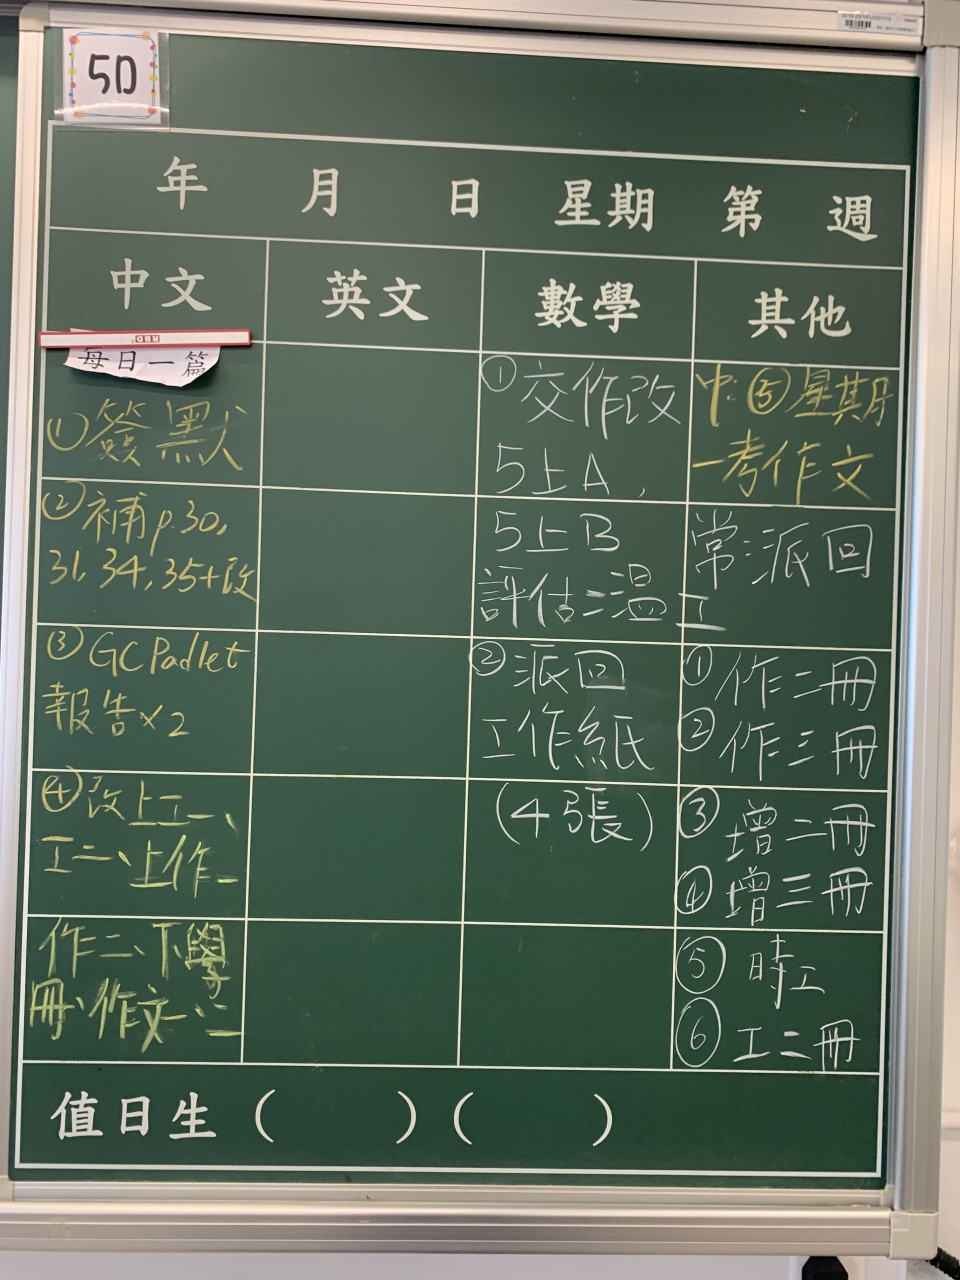 5D
年 月 日 星期 第 週
中文 英文 數學 其他
RED
每日一篇
① 簽默
② 補 p.30,
31, 34, 35+改
③ GC Padlet
報告×2
④ 改上工一、
工二、上作一
作二、下學
冊、作文一、二
① 交作改
5上A,
5上B
評估二溫工
② 派回
工作紙
(4張)
中: ⑤ 星期
一考作文
常:派回
① 作二冊
② 作三冊
③ 增二冊
④ 增三冊
⑤ 時工
⑥ 工二冊
值日生 ( ) ( )